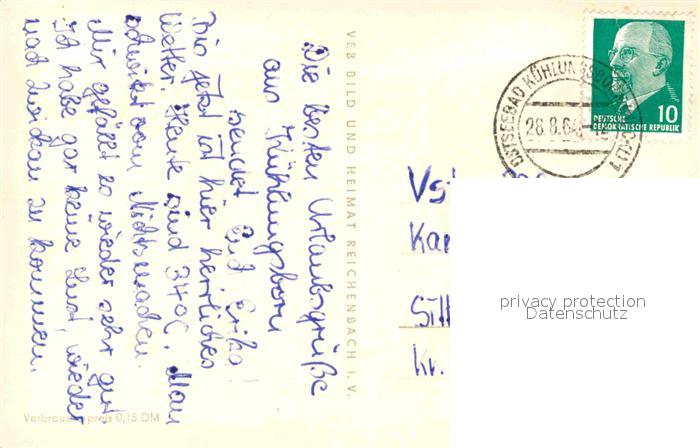 Die besten Urlaubsgrüße
aus Kühlungsborn
sendet Eud Erika!
Bis jetzt ist hier herrliches
Wetter. Heute sind 34°C. Man
schwitzt vom Nichtsmachen.
Mir gefällt es wieder sehr gut
Ich habe gar keine Lust, wieder
nach Zwickau zu kommen.
VEB BILD UND HEIMAT REICHENBACH I. V.
Verbraucherpreis 0,15 DM
OSTSEEBAD KÜHLUNGSBORN
28.8.64
10
DEUTSCHE
DEMOKRATISCHE REPUBLIK
Kr.
privacy protection
Datenschutz